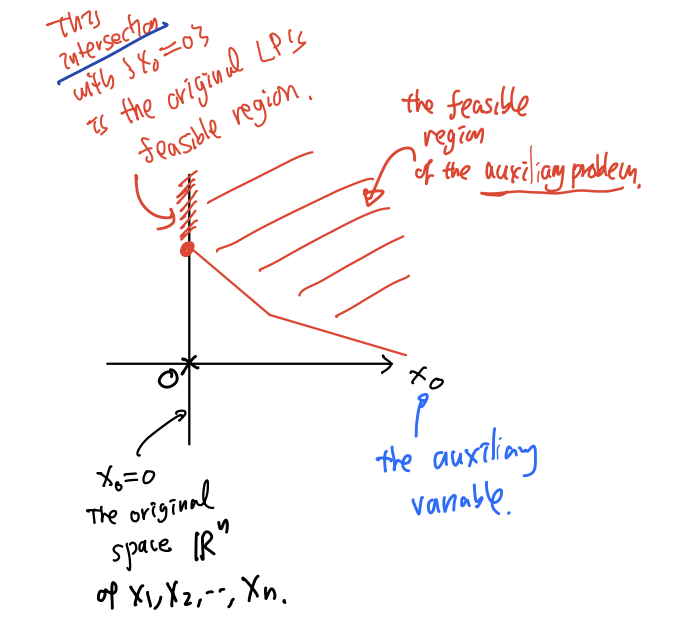 This
intersection
with {x₀=0}
is the original LP's
feasible region.
the feasible
region
of the auxiliary problem.
O
x₀
the auxiliary
variable.
x₀=0
The original
space ℝⁿ
of x₁, x₂, --, xₙ.